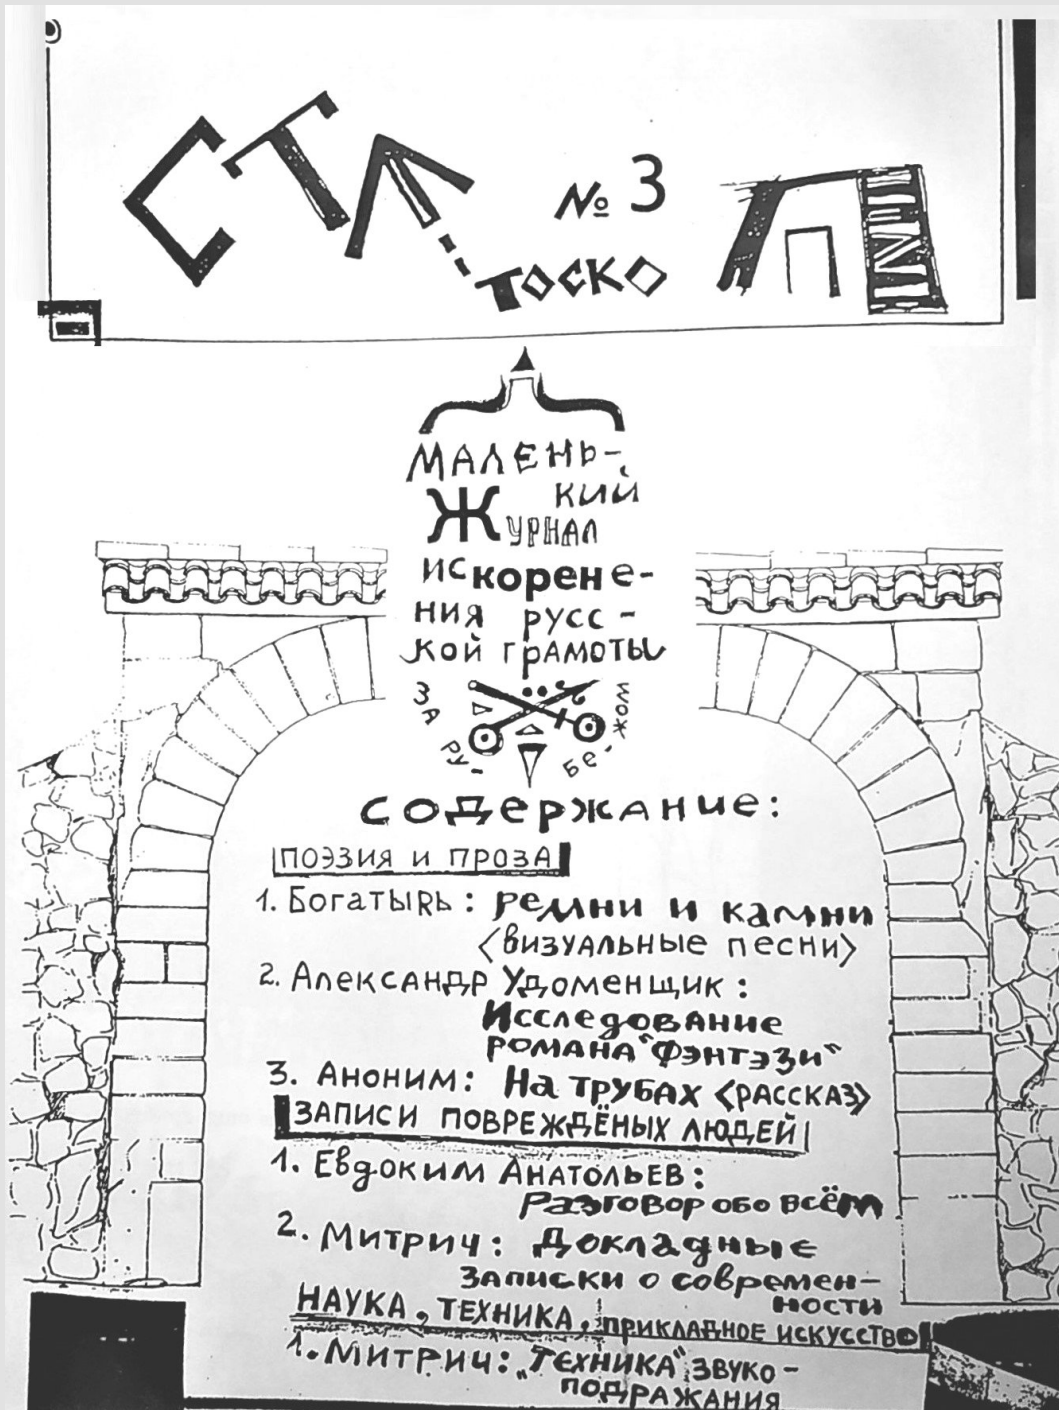 СТЛ-
тоско
№ 3
П
МАЛЕНЬ-
КИЙ
ЖУРНАЛ
искорене-
ния русс-
кой грамоты
ЗА РУ-БЕ-ЖОМ
содержание:
ПОЭЗИЯ И ПРОЗА
1. БогатыRь: ремни и камни
<визуальные песни>
2. Александр Удоменщик:
Исследование
романа "Фэнтэзи"
3. Аноним: На трубах <рассказ>
ЗАПИСИ ПОВРЕЖДЁНЫХ ЛЮДЕЙ
1. Евдоким Анатольев:
Разговор обо всём
2. Митрич: Докладные
записки о современ-
ности
НАУКА, ТЕХНИКА, ПРИКЛАДНОЕ ИСКУССТВО
1. Митрич: „ТЕХНИКА" ЗВУКО-
ПОДРАЖАНИЯ